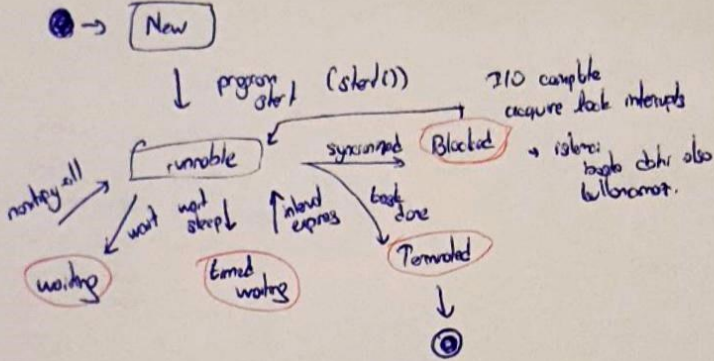 New
program start (start())
I/O complete
acquire lock interrupts
runnable
syncronized
Blocked
→ islemci
boşta dahi olsa
kullanamaz.
notify all
wait
wait
sleep
interval
expires
task
done
waiting
timed
waiting
Terminated